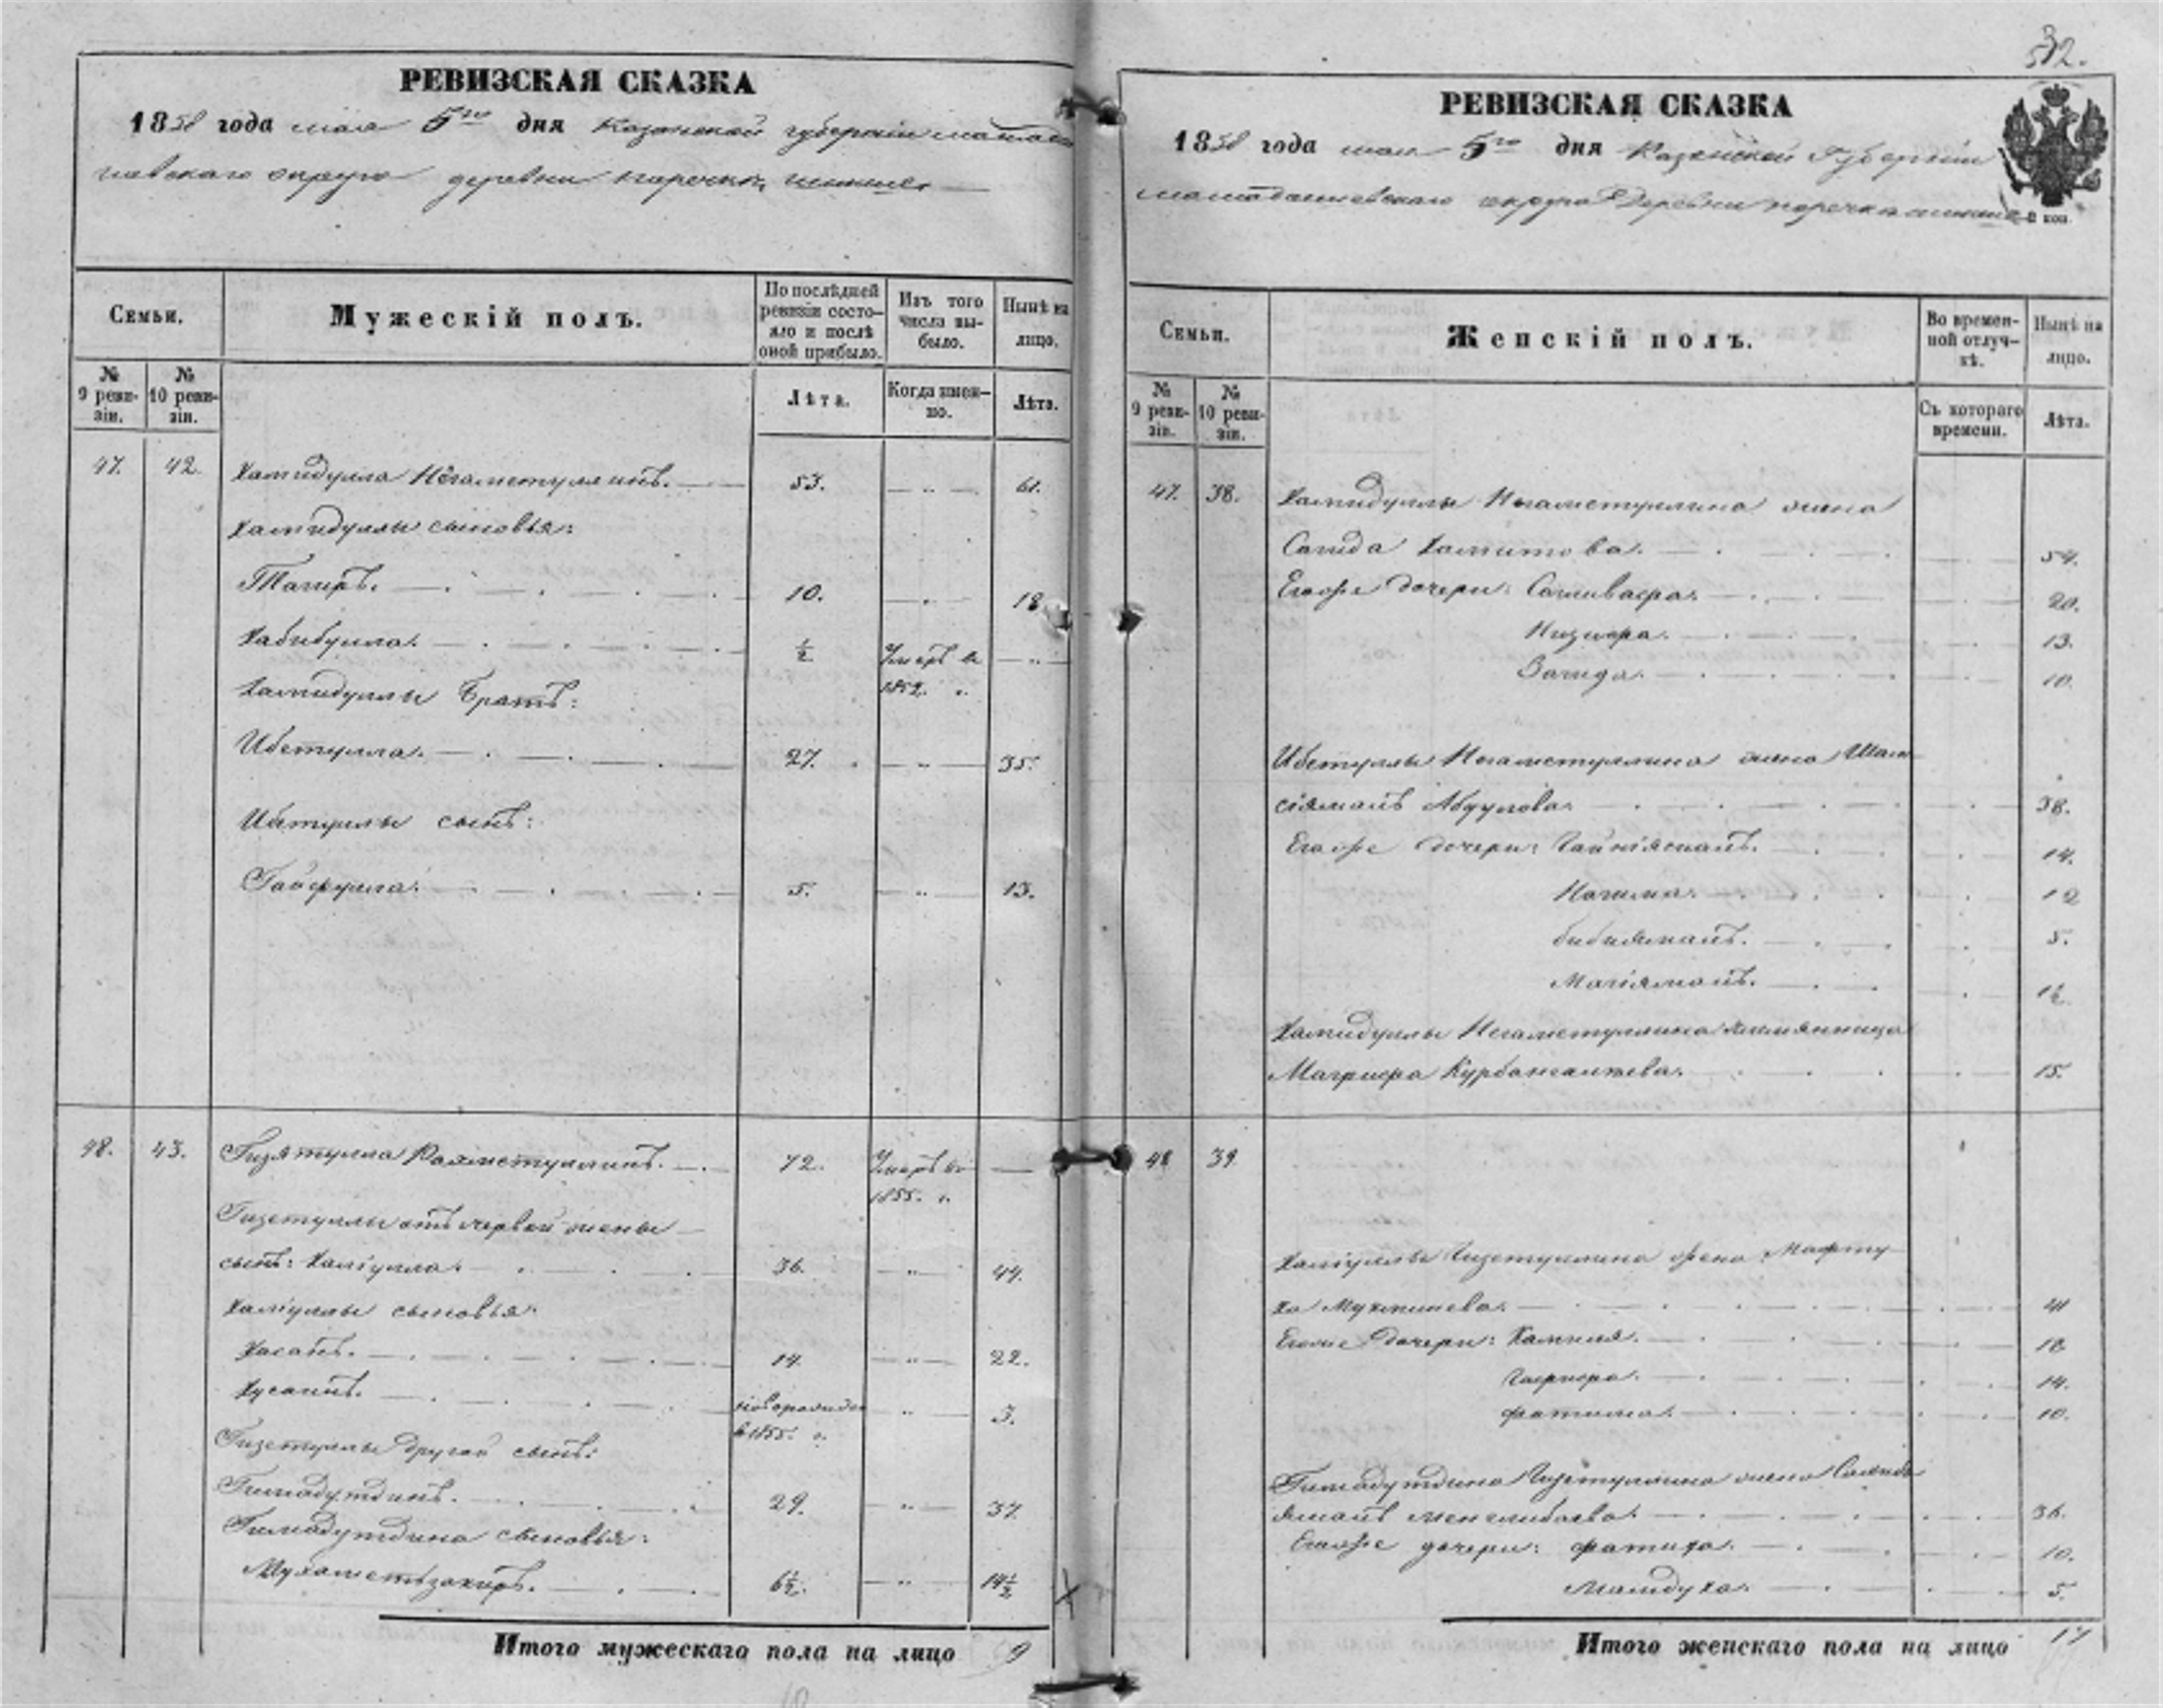 РЕВИЗСКАЯ СКАЗКА
1858 года мая 5го дня Казанской губернии
округа деревни
Семьи.
Мужескій полъ.
По послѣдней ревизіи состояло и послѣ оной прибыло.
Изъ того числа выбыло.
Нынѣ на лицо.
№ 9 ревизіи.
№ 10 ревизіи.
Лѣта.
Когда именно.
Лѣта.
47. 42. Хамидулла Негаметуллинъ. 53. 61.
Хамидуллы сыновья:
Тагиръ. 10. 18
Хабибулла. ½ Умеръ въ
1852.
Хамидуллы братъ:
Ибетулла. 27. 35.
Ибетуллы сынъ:
5. 13.
48. 43. Гизятулла Рахметуллинъ. 72. Умеръ въ
1855.
Гизетуллы отъ первой жены
сынъ: Халіулла. 36. 44.
Халіуллы сыновья:
Хасанъ. 14. 22.
Хусаинъ. 3.
в 1855.
Гизетуллы другой сынъ:
Гимадутдинъ. 29. 37.
Гимадутдина сыновья:
Мухаметзакиръ. 6½. 14½
Итого мужескаго пола на лицо 9
32.
РЕВИЗСКАЯ СКАЗКА
1858 года мая 5го дня Казанской Губерніи
округа деревни
Семьи.
Женскій полъ.
Во временной отлучкѣ.
Нынѣ на лицо.
№ 9 ревизіи.
№ 10 ревизіи.
Съ котораго времени.
Лѣта.
47. 38. Хамидуллы Негаметуллина жена
Сагида Хамитова. 54.
Егоже дочери: 20.
13.
Загида. 10.
Ибетуллы Негаметуллина жена Шам
сіямалъ Абдулова. 38.
Егоже дочери: 14.
Нагима. 12
Бибиямалъ. 5.
Магіямалъ. 1½
Хамидуллы Негаметуллина племянница
Магрифа 15.
48 39.
Халіуллы Гизетуллина жена Мафту
ха 41
Егоже дочери: Камиля. 18
14.
Фатима. 10.
Гимадутдина Гизетуллина жена
ямалъ Менглибаева. 36.
Егоже дочери: Фатиха. 10.
Мамдуха. 5.
Итого женскаго пола на лицо 17